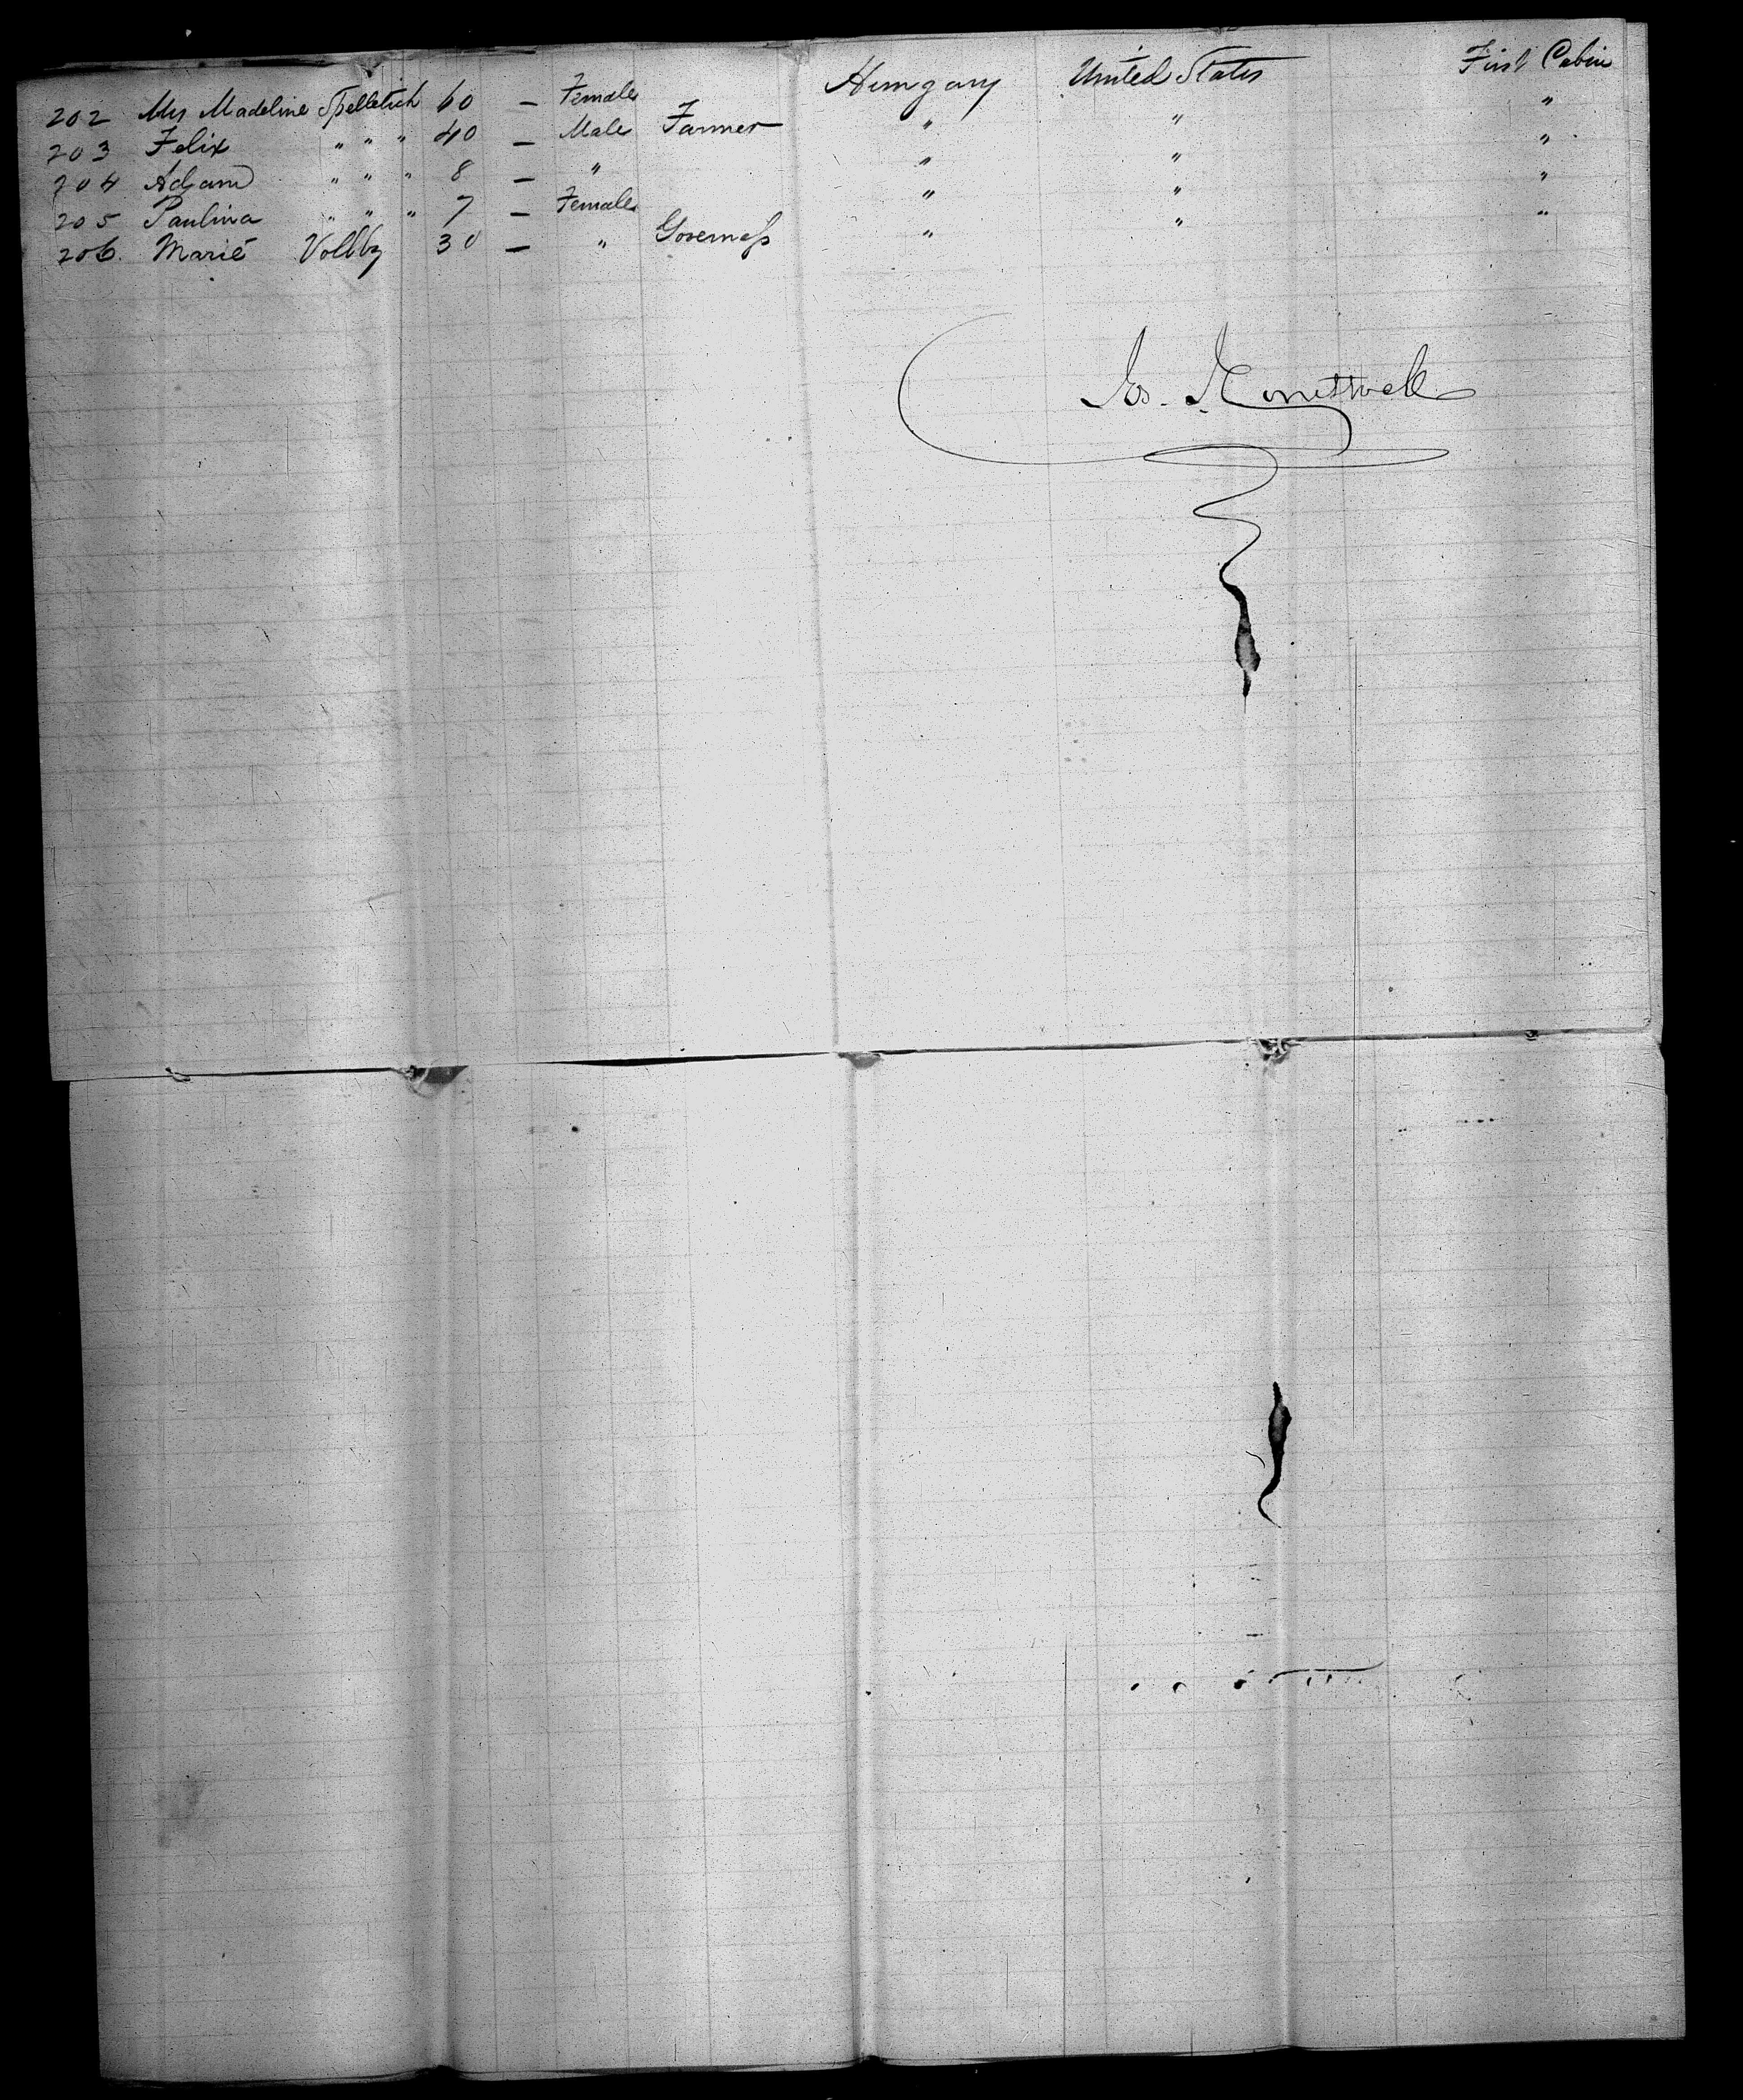 202 Mrs Madeline Spelletich 60 — Female Hungary United States First Cabin
203 Felix " " " 40 — Male Farmer " " "
204 Adam " " " 8 — " " " "
205 Paulina " " " 7 — Female " " "
206. Marie Vollby 30 — " Governess " " "